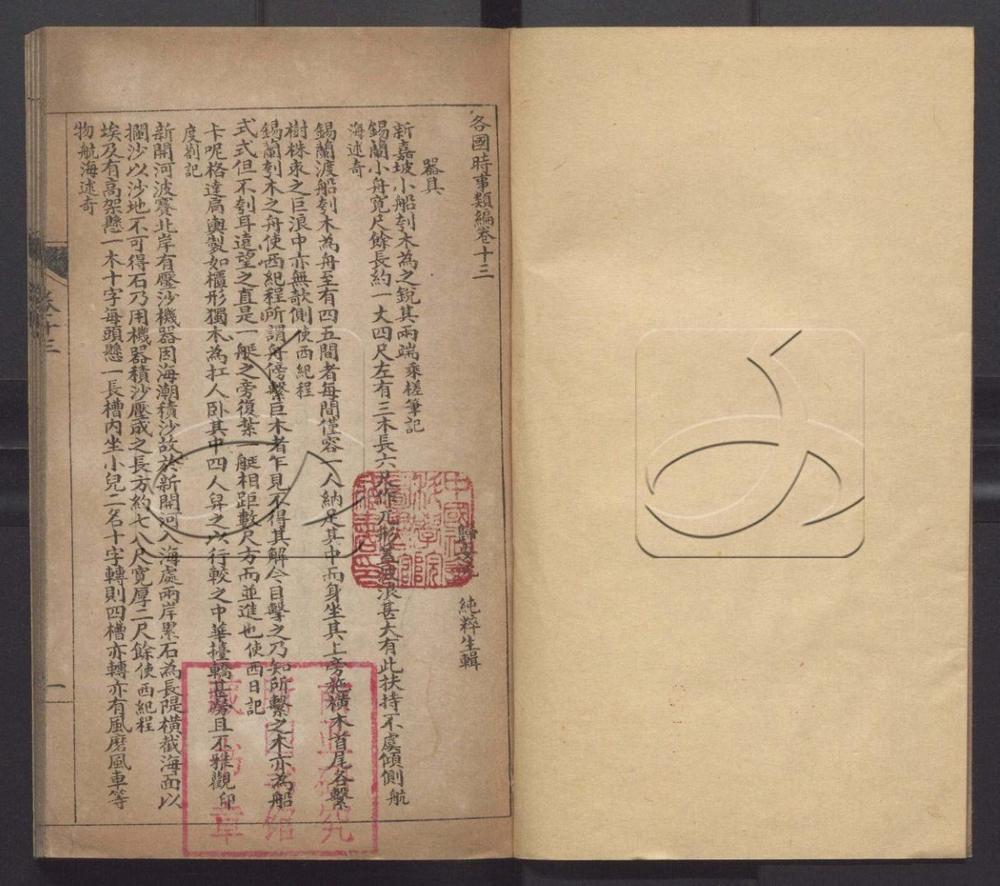 各國時事類編卷十三
純粹生輯
器具
新嘉坡小船刳木為之銳其兩端乘槎筆記
錫蘭小舟寬尺餘長約一丈四尺左有三木長六尺作兀形置浪甚大有此扶持不虞傾側航
海述奇
錫蘭渡船刳木為舟至有四五間者每間僅容一人納足其中而身坐其上旁施橫木首尾各繫
樹株束之巨浪中亦無欹側使西紀程
錫蘭刳木之舟使西紀程所謂舟傍繫巨木者乍見不得其解今目擊之乃知所繫之木亦為船
式式但不刳耳遠望之直是一艇之旁復葉一艇相距數尺方而並進也使西日記
卡呢格達肩輿製如櫃形獨木為扛人臥其中四人舁之以行較之中華擡轎甚勞且不雅觀印
度劄記
新開河波賽北岸有壓沙機器因海潮積沙故於新開河入海處兩岸累石為長隄橫截海面以
攔沙以沙地不可得石乃用機器積沙壓成之長方約七八尺寬厚二尺餘使西紀程
埃及有高架懸一木十字每頭懸一長槽內坐小兒二名十字轉則四槽亦轉亦有風磨風車等
物航海述奇
卷十三
一